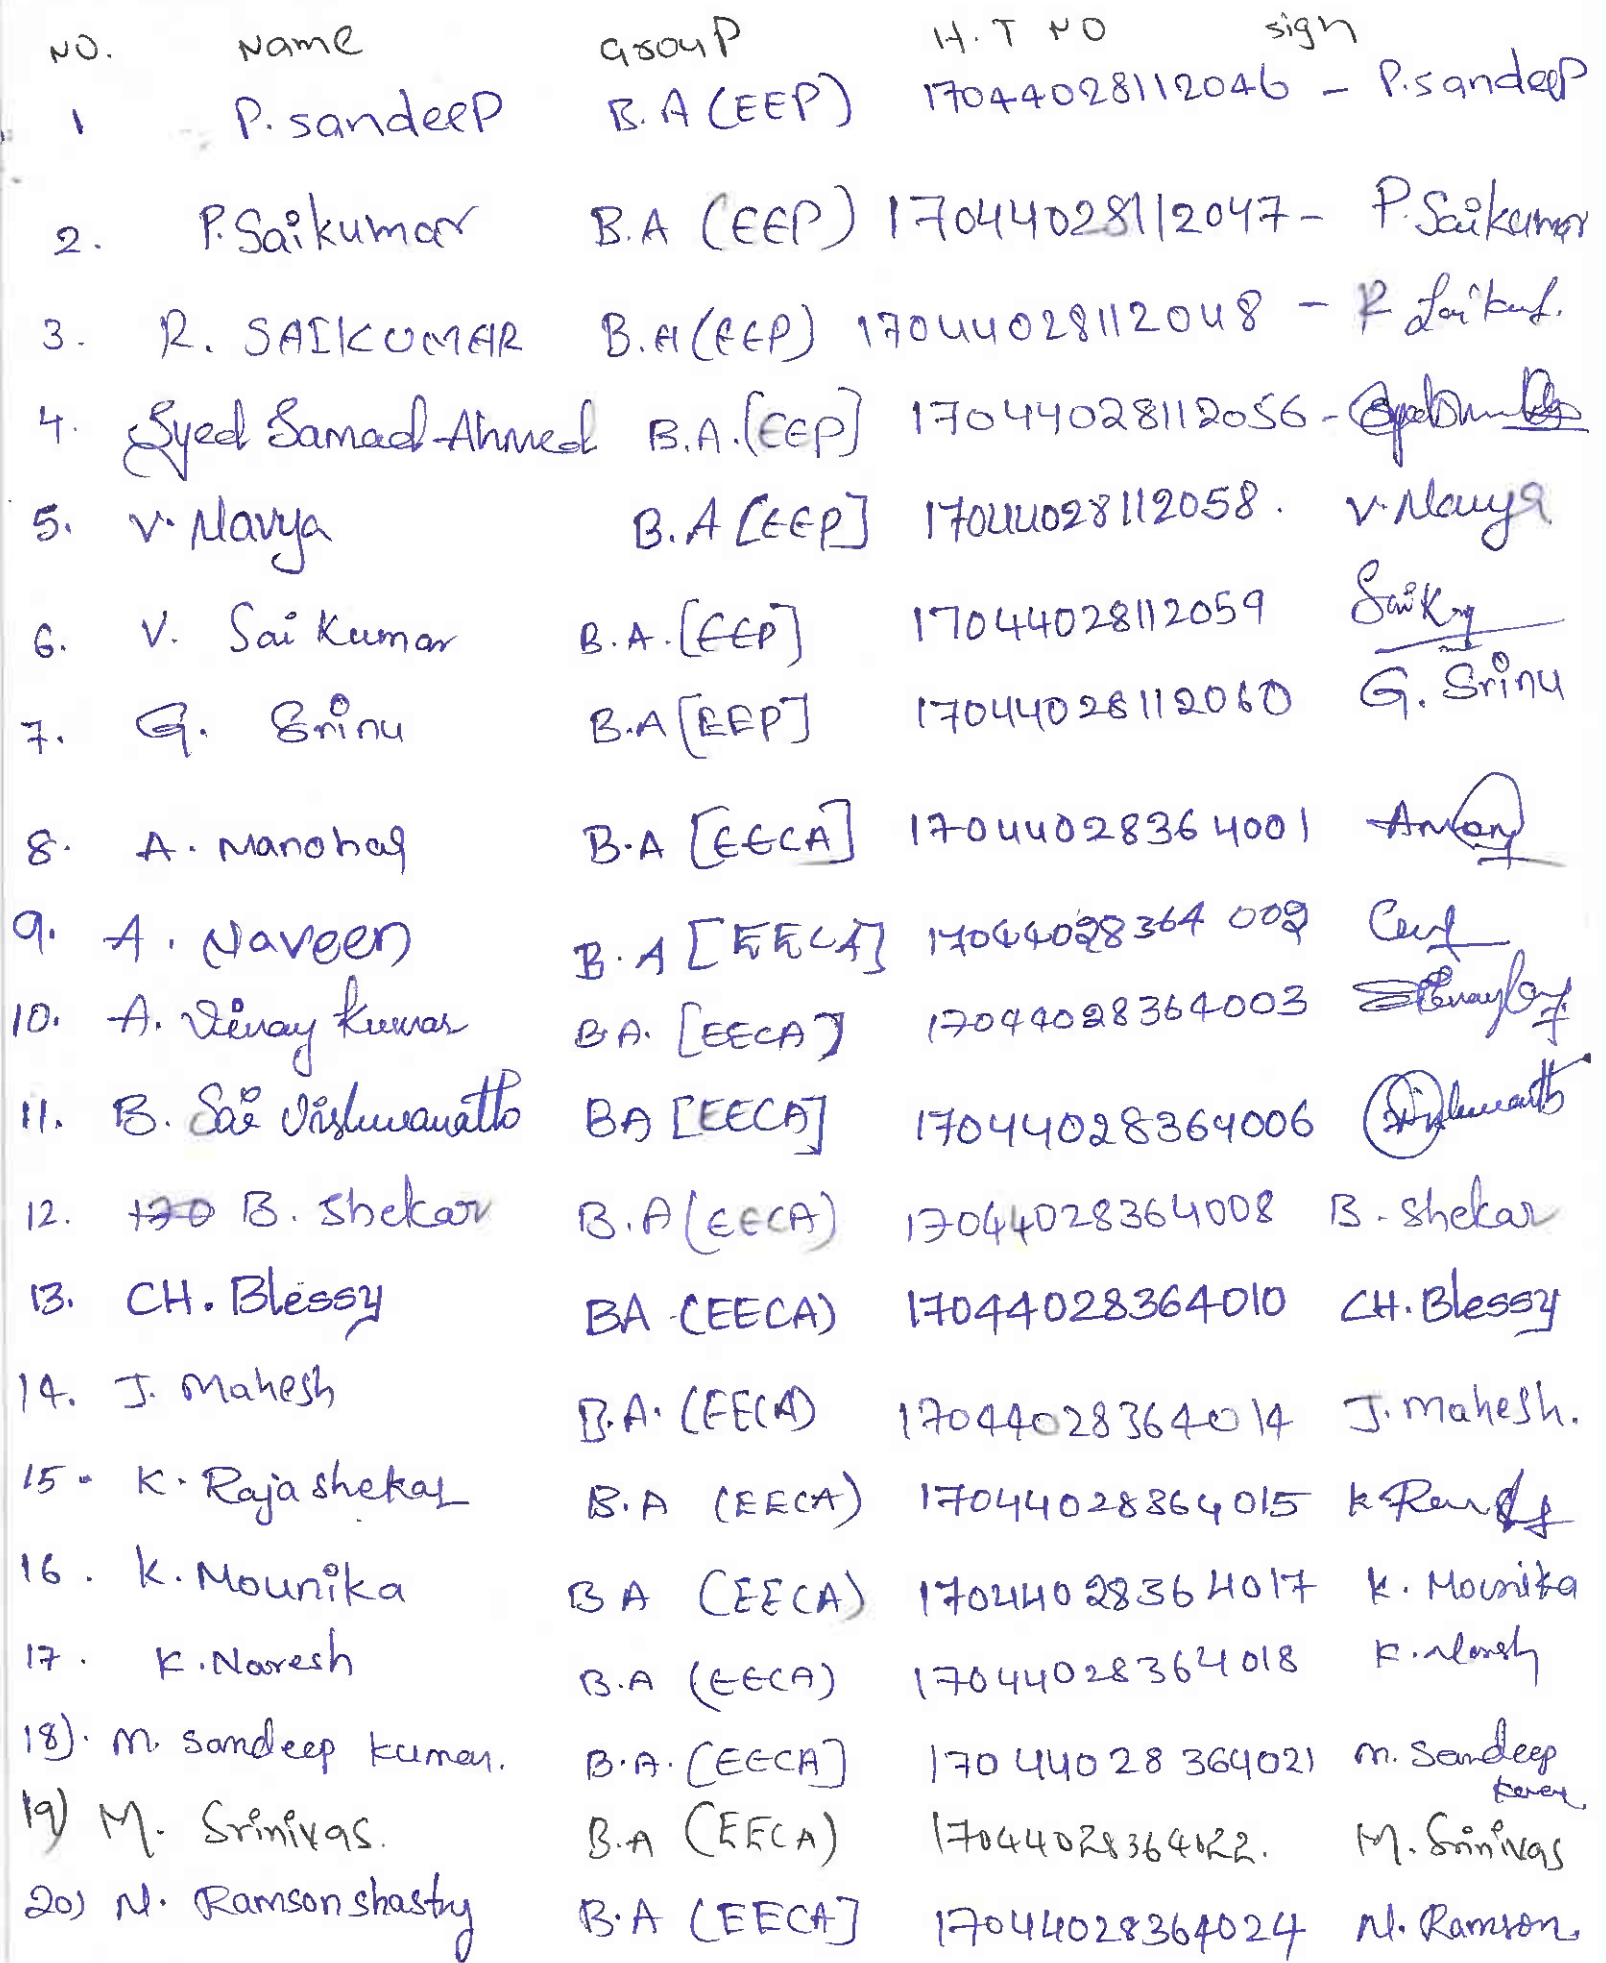 NO. Name Group H.T NO sign
1 P. sandeep B.A (EEP) 17044028112046 - P. sandeep
2. P. Saikumar B.A (EEP) 17044028112047 - P. Saikumar
3. R. SAIKUMAR B.A (EEP) 17044028112048 - R
4. Syed Samad Ahmed B.A. [EEP] 17044028112056 -
5. V. Navya B.A [EEP] 17044028112058. V. Navya
6. V. Sai Kumar B.A. [EEP] 17044028112059
7. G. Srinu B.A [EEP] 17044028112060 G. Srinu
8. A. Manohar B.A [EECA] 17044028364001
9. A. Naveen B.A [EECA] 17044028364 002
10. A. Vinay kumar B.A. [EECA] 17044028364003
11. B. Sai Vishwanath BA [EECA] 17044028364006
12. B. Shekar B.A (EECA) 17044028364008 B. Shekar
13. CH. Blessy BA (EECA) 17044028364010 CH. Blessy
14. J. Mahesh B.A. (EECA) 17044028364014 J. Mahesh.
15. K. Rajashekar B.A (EECA) 17044028364015 K
16. K. Mounika BA (EECA) 17044028364017 K. Mounika
17. K. Naresh B.A (EECA) 17044028364018 K. Naresh
18). M. Sandeep kumar. B.A. (EECA] 17044028 364021 M. Sandeep
19) M. Srinivas. B.A (EECA) 17044028364022. M. Srinivas
20) N. Ramsonshastry B.A (EECA] 17044028364024 N. Ramson